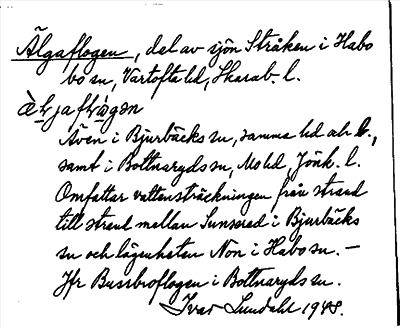 Älgaflogen, del av sjön Stråken i Habo
bo sn, Vartofta hd, Skarab. l.
Även i Bjurbäcks sn, samma hd och l.,
samt i Bottnaryds sn, Mo hd, Jönk. l.
Omfattar vattensträckningen från strand
till strand mellan Sunsered i Bjurbäcks
sn och lägenheten Non i Habo sn. —
Jfr Bussbroflogen i Bottnaryds sn.
Ivar Lundahl 1948.